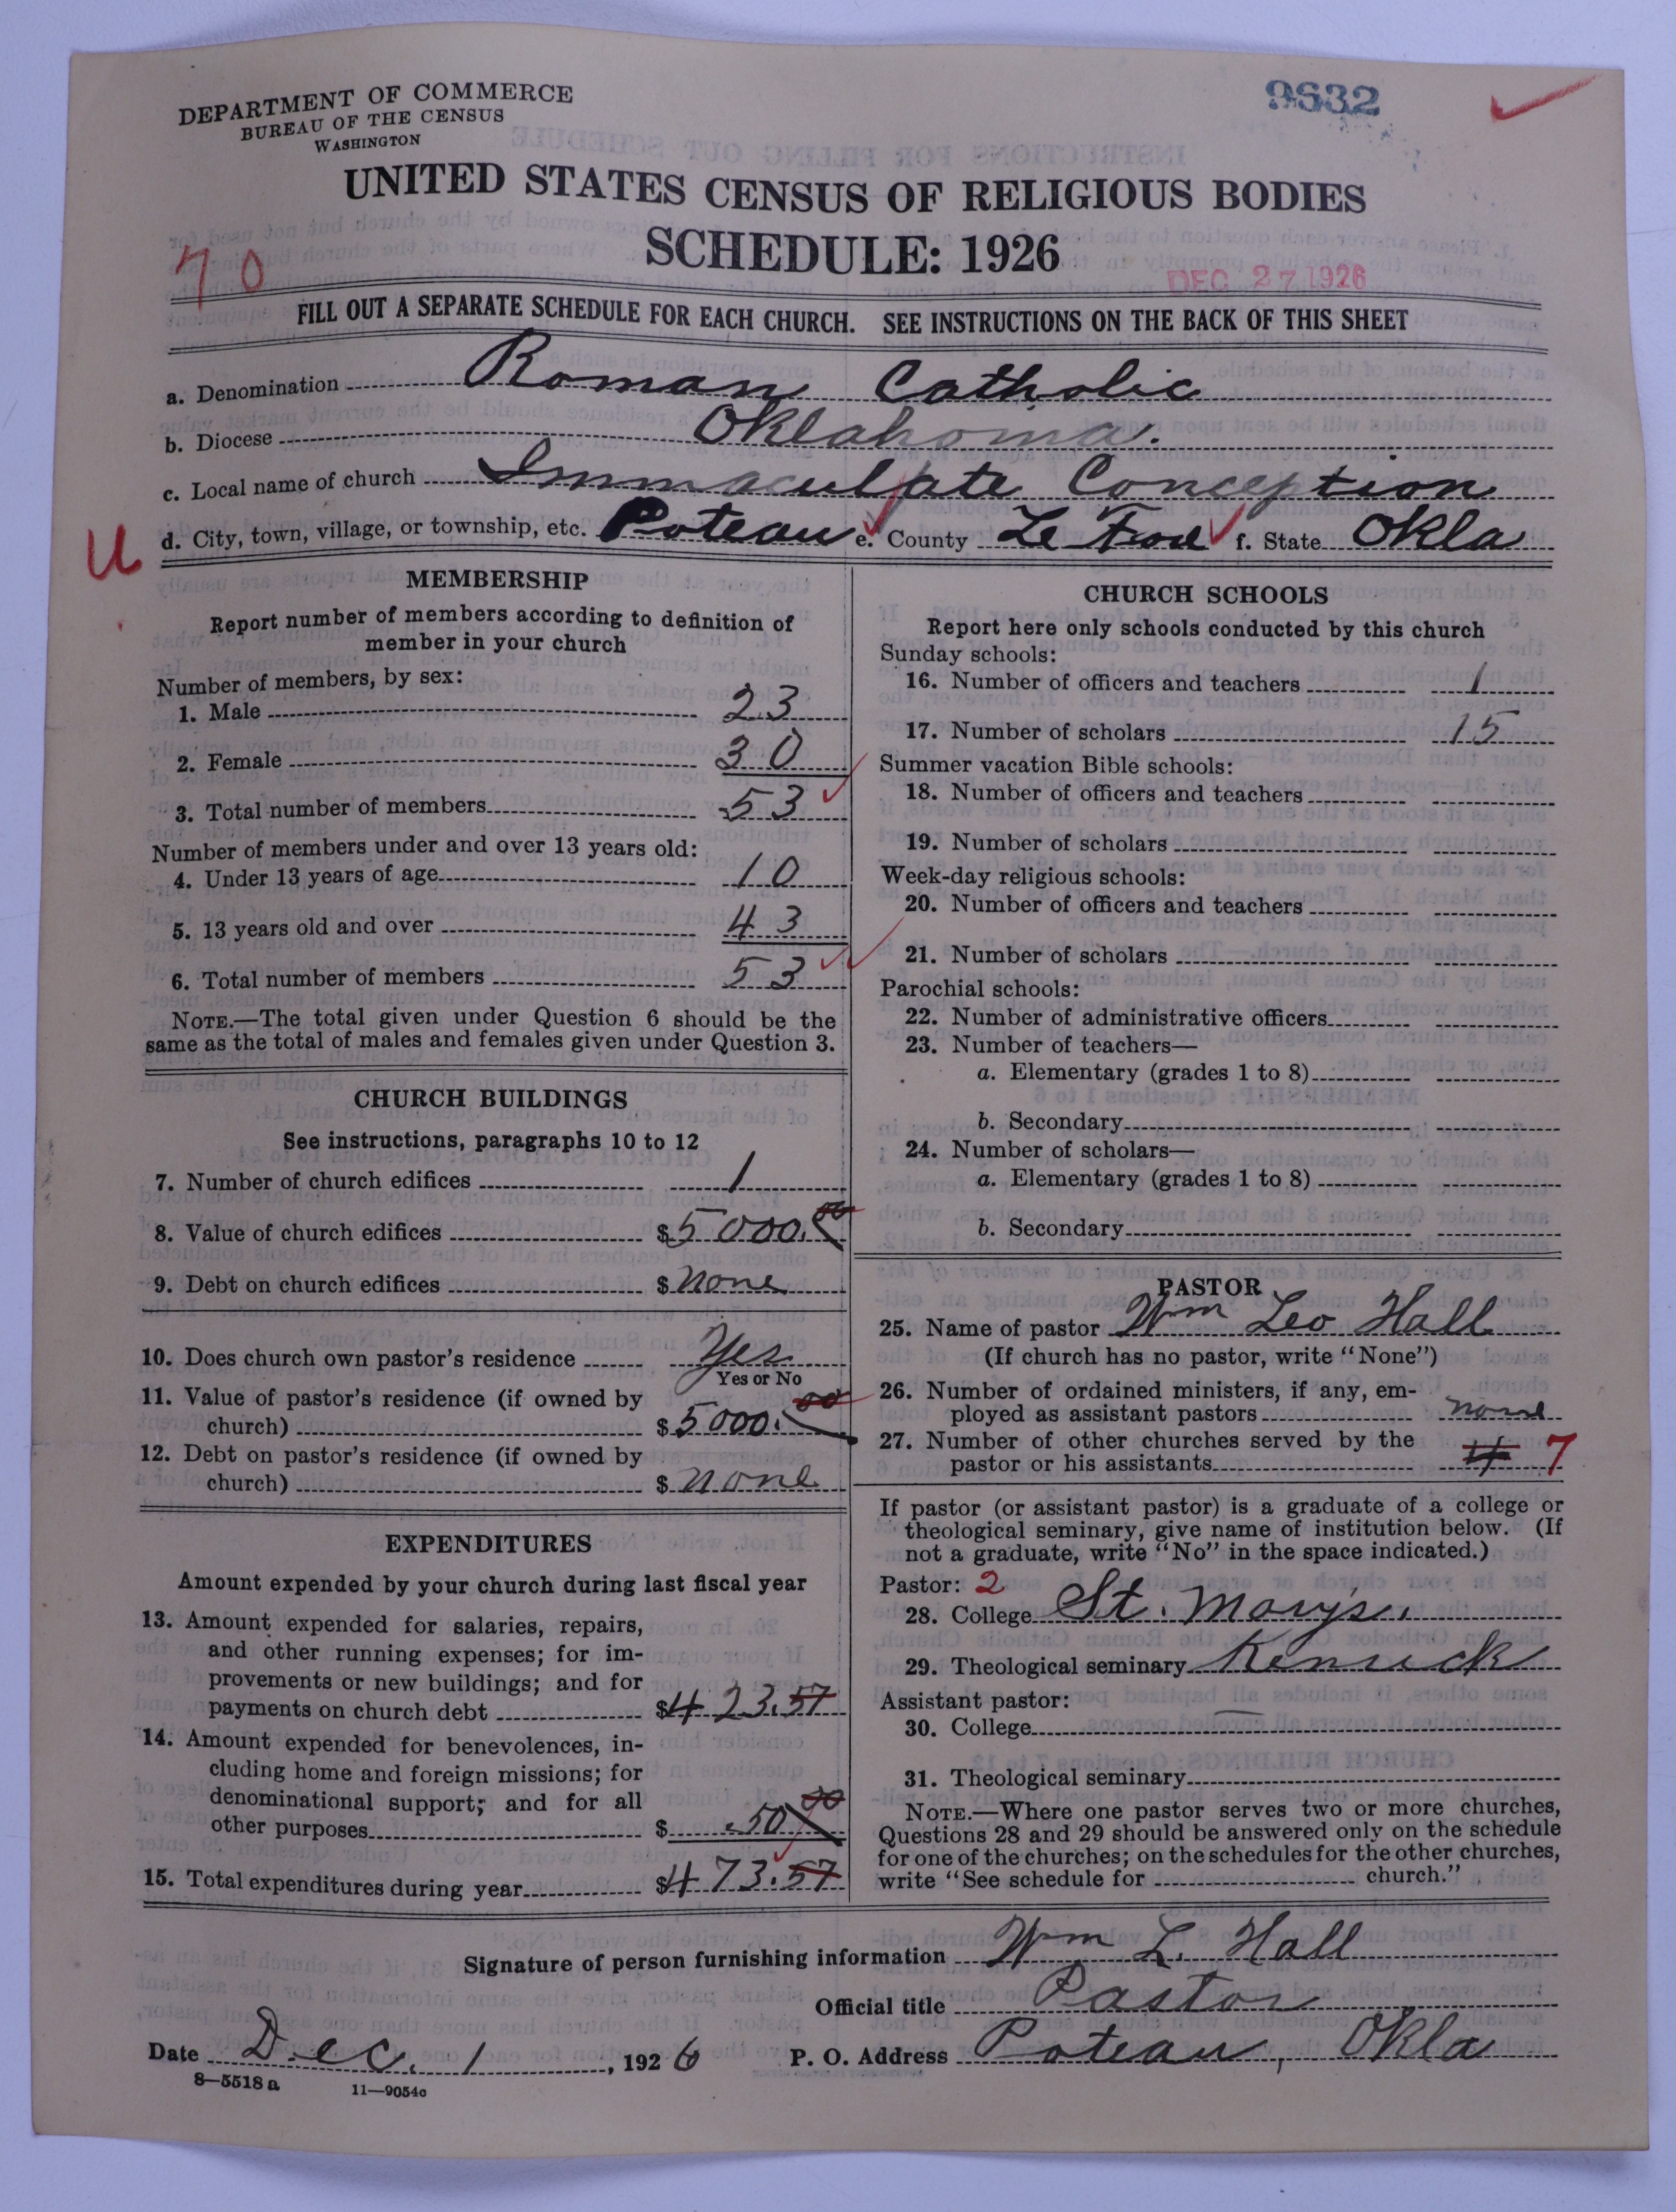 DEPARTMENT OF COMMERCE
BUREAU OF THE CENSUS
WASHINGTON
9632
UNITED STATES CENSUS OF RELIGIOUS BODIES
SCHEDULE: 1926
70
DEC 27 1926
FILL OUT A SEPARATE SCHEDULE FOR EACH CHURCH. SEE INSTRUCTIONS ON THE BACK OF THIS SHEET
a. Denomination Roman Catholic
b. Diocese Oklahoma.
c. Local name of church Immaculate Conception
U d. City, town, village, or township, etc. Poteau e. County Le Flore f. State Okla
MEMBERSHIP
Report number of members according to definition of
member in your church
Number of members, by sex:
1. Male 23
2. Female 30
3. Total number of members 53
Number of members under and over 13 years old:
4. Under 13 years of age 10
5. 13 years old and over 43
6. Total number of members 53
NOTE.—The total given under Question 6 should be the
same as the total of males and females given under Question 3.
CHURCH BUILDINGS
See instructions, paragraphs 10 to 12
7. Number of church edifices 1
8. Value of church edifices $5000.00
9. Debt on church edifices $ none
10. Does church own pastor's residence Yes
Yes or No
11. Value of pastor's residence (if owned by
church) $5000.00
12. Debt on pastor's residence (if owned by
church) $ none
EXPENDITURES
Amount expended by your church during last fiscal year
13. Amount expended for salaries, repairs,
and other running expenses; for im-
provements or new buildings; and for
payments on church debt $423.57
14. Amount expended for benevolences, in-
cluding home and foreign missions; for
denominational support; and for all
other purposes $ 50 00
15. Total expenditures during year $473.57
CHURCH SCHOOLS
Report here only schools conducted by this church
Sunday schools:
16. Number of officers and teachers 1
17. Number of scholars 15
Summer vacation Bible schools:
18. Number of officers and teachers
19. Number of scholars
Week-day religious schools:
20. Number of officers and teachers
21. Number of scholars
Parochial schools:
22. Number of administrative officers
23. Number of teachers—
a. Elementary (grades 1 to 8)
b. Secondary
24. Number of scholars—
a. Elementary (grades 1 to 8)
b. Secondary
PASTOR
25. Name of pastor Wm Leo Hall
(If church has no pastor, write "None")
26. Number of ordained ministers, if any, em-
ployed as assistant pastors none
27. Number of other churches served by the
pastor or his assistants 4 7
If pastor (or assistant pastor) is a graduate of a college or
theological seminary, give name of institution below. (If
not a graduate, write "No" in the space indicated.)
Pastor: 2
28. College St. Mary's.
29. Theological seminary Kenrick
Assistant pastor:
30. College
31. Theological seminary
NOTE.—Where one pastor serves two or more churches,
Questions 28 and 29 should be answered only on the schedule
for one of the churches; on the schedules for the other churches,
write "See schedule for church."
Signature of person furnishing information Wm L. Hall
Official title Pastor
Date Dec. 1, 1926 P. O. Address Poteau, Okla
8—5518 a 11—9054c